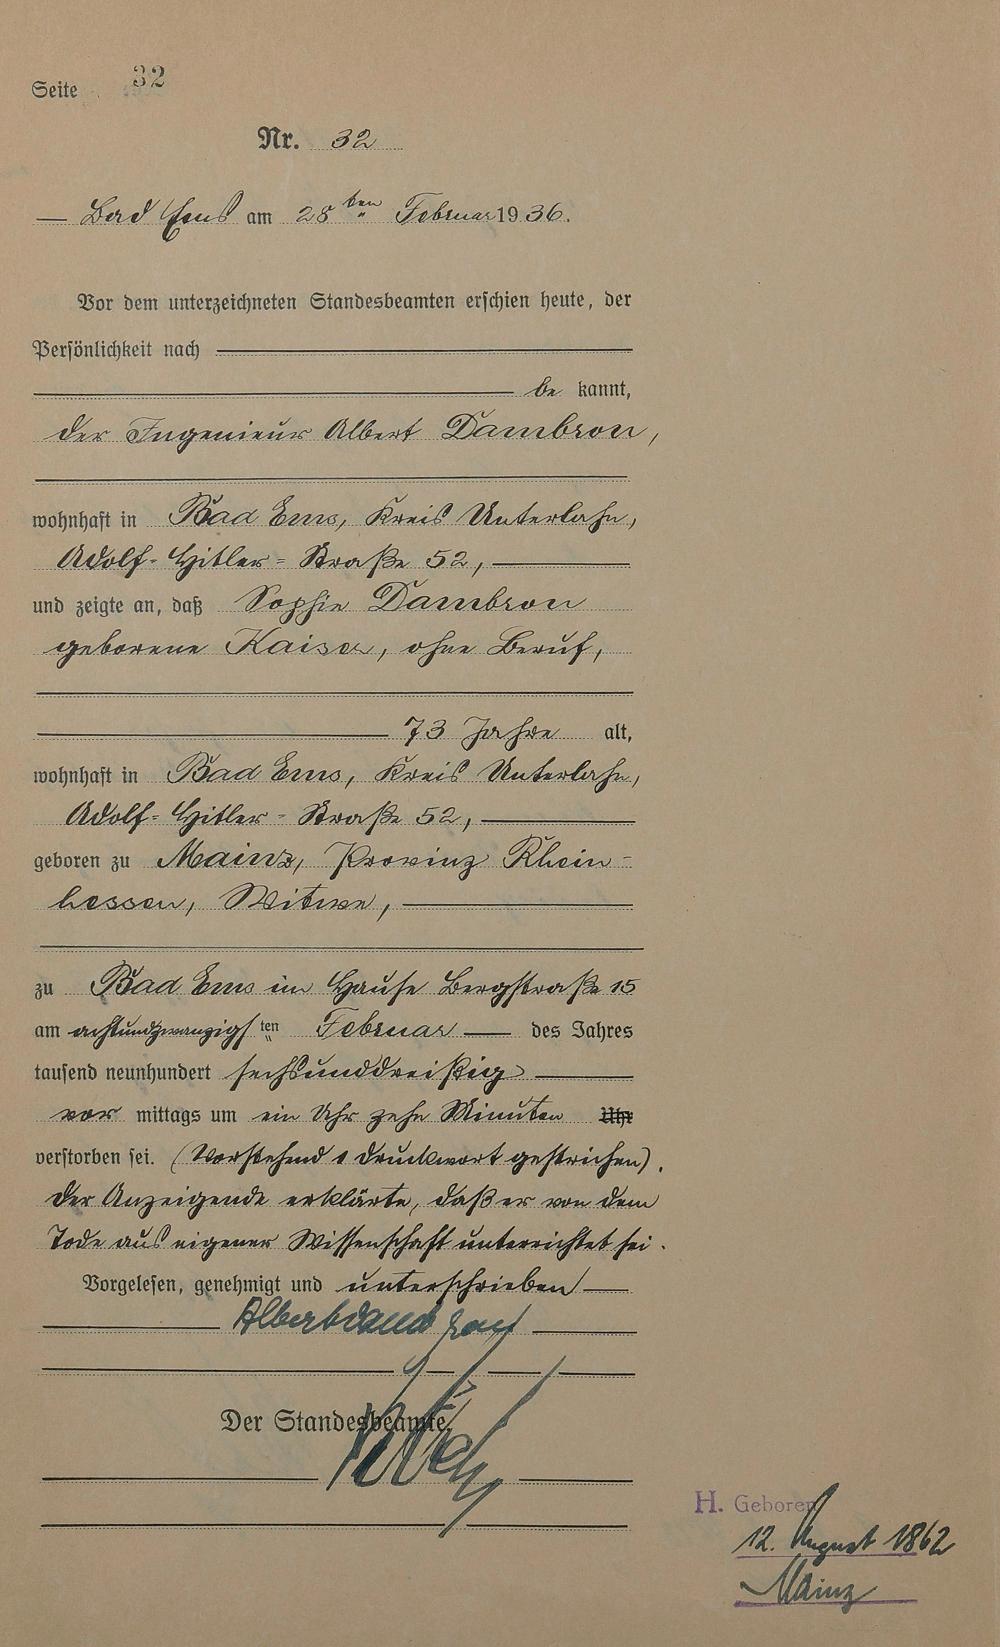 Seite 32
Nr. 32
— Bad Ems am 28ten Februar 1936.
Vor dem unterzeichneten Standesbeamten erschien heute, der
Persönlichkeit nach
be kannt,
der Ingenieur Albert Dambron,
wohnhaft in Bad Ems, Kreis Unterlahn,
Adolf-Hitler-Straße 52,
und zeigte an, daß Sophie Dambron
geborene Kaiser, ohne Beruf,
73 Jahre alt,
wohnhaft in Bad Ems, Kreis Unterlahn,
Adolf-Hitler-Straße 52,
geboren zu Mainz, Provinz Rhein-
hessen, Witwe,
zu Bad Ems im Hause Bergstraße 15
am achtundzwanzigsten Februar des Jahres
tausend neunhundert sechsunddreißig
vor mittags um ein Uhr zehn Minuten Uhr
verstorben sei. (Vorstehend 1 Druckwort gestrichen).
Der Anzeigende erklärte, daß er von dem
Tode aus eigener Wissenschaft unterrichtet sei.
Vorgelesen, genehmigt und unterschrieben
Albert Dambron
Der Standesbeamte.
H. Geboren
12. August 1862
Mainz